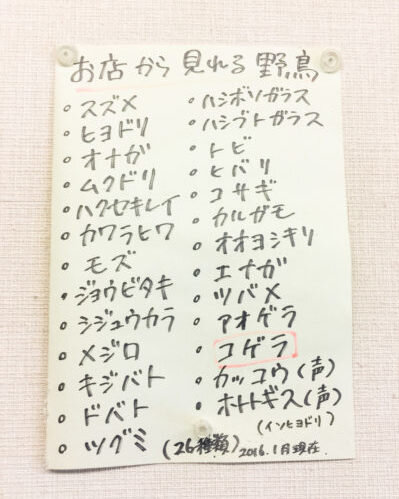 お店から見れる野鳥
・スズメ
・ヒヨドリ
・オナガ
・ムクドリ
・ハクセキレイ
・カワラヒワ
・モズ
・ジョウビタキ
・シジュウカラ
・メジロ
・キジバト
・ドバト
・ツグミ
・ハシボソガラス
・ハシブトガラス
・トビ
・ヒバリ
・コサギ
・カルガモ
・オオヨシキリ
・エナガ
・ツバメ
・アオゲラ
・コゲラ
・カッコウ(声)
・ホトトギス(声)
(イソヒヨドリ)
(26種類) 2016.1月現在.